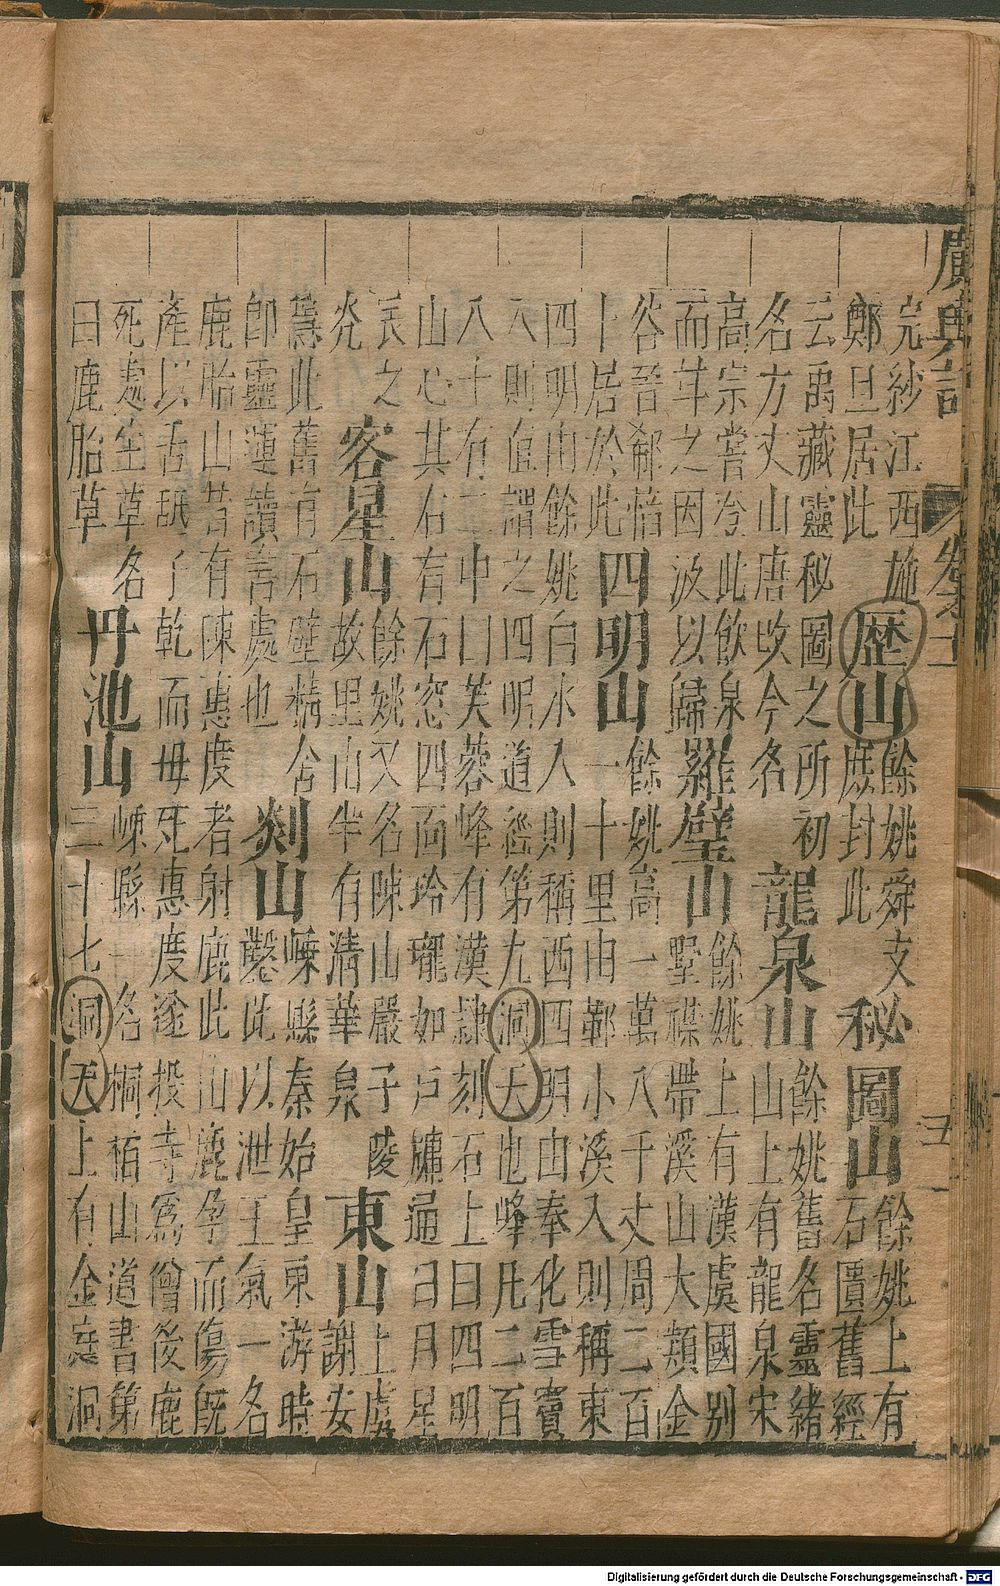 廣輿記
卷之十
五
浣紗江西施
鄭旦居此
歷山
餘姚舜支
庶封此
秘圖山
餘姚上有
石匱舊經
云禹藏靈秘圖之所初
名方丈山唐攺今名
龍泉山
餘姚舊名靈緒
山上有龍泉宋
高宗嘗登此飲泉
而甘之因汲以歸
羅璧山
餘姚上有漢虞國别
墅襟帶溪山大類金
谷晉郗愔
卜居於此
四明山
餘姚高一萬八千丈周二百
一十里由鄞小溪入則稱東
四明由餘姚白水入則稱西四明由奉化雪竇
入則直謂之四明道經第九洞天也峰凡二百
八十有二中曰芙蓉峰有漢隷刻石上曰四明
山心其右有石窓四面玲瓏如戸牖通日月星
辰之
光
客星山
餘姚又名陳山嚴子陵
故里山半有清華泉
東山
上虞
謝安
此舊有石壁精舍
即靈運讀書處也
剡山
嵊縣秦始皇東游時
鑿此以泄王氣一名
鹿胎山昔有陳惠度者射鹿此山鹿孕而傷既
產以舌舐子乾而母死惠度遂投寺爲僧後鹿
死處生草名
曰鹿胎草
丹池山
嵊縣一名桐栢山道書第
三十七洞天上有金庭洞
Digitalisierung gefördert durch die Deutsche Forschungsgemeinschaft - DFG